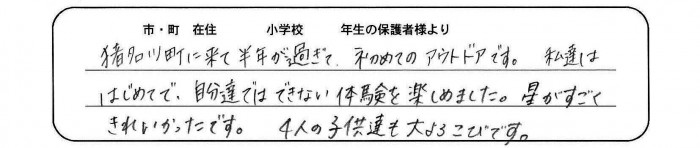 市・町 在住 小学校 年生の保護者様より
猪名川町に来て半年が過ぎて、初めてのアウトドアです。 私達は
はじめてで、自分達ではできない体験を楽しめました。星がすごく
きれいかったです。 4人の子供達も大よろこびです。